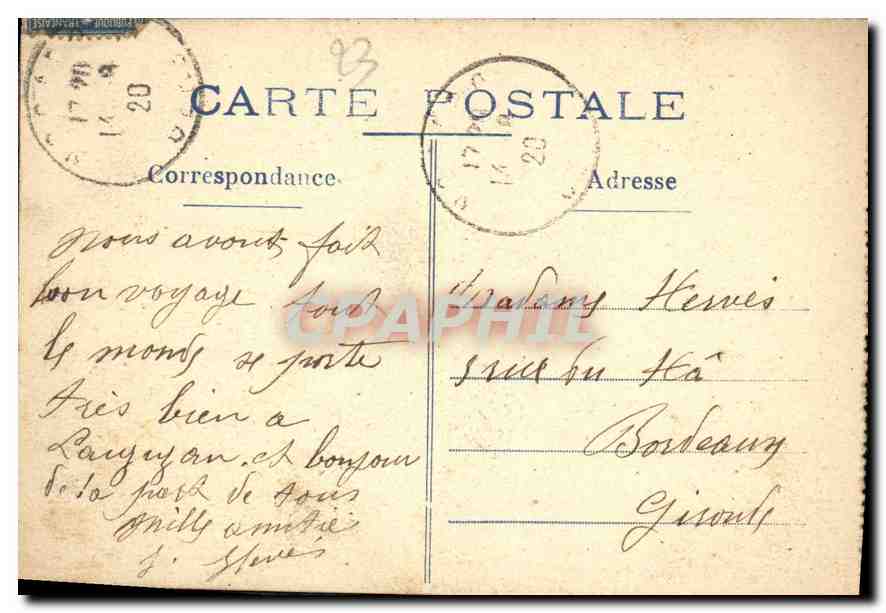 REPUBLIQUE FRANÇAISE
23
17 20
14 9
20
17 20
14 9
20
CARTE POSTALE
Correspondance
nous avont fait
bon voyage tout
le monde se porte
très bien a
et bonjour
de la part de tous
mille amitié
Adresse
Madame Hervés
5 rue du Hâ
Bordeaux
Gironde
CPAPHIL